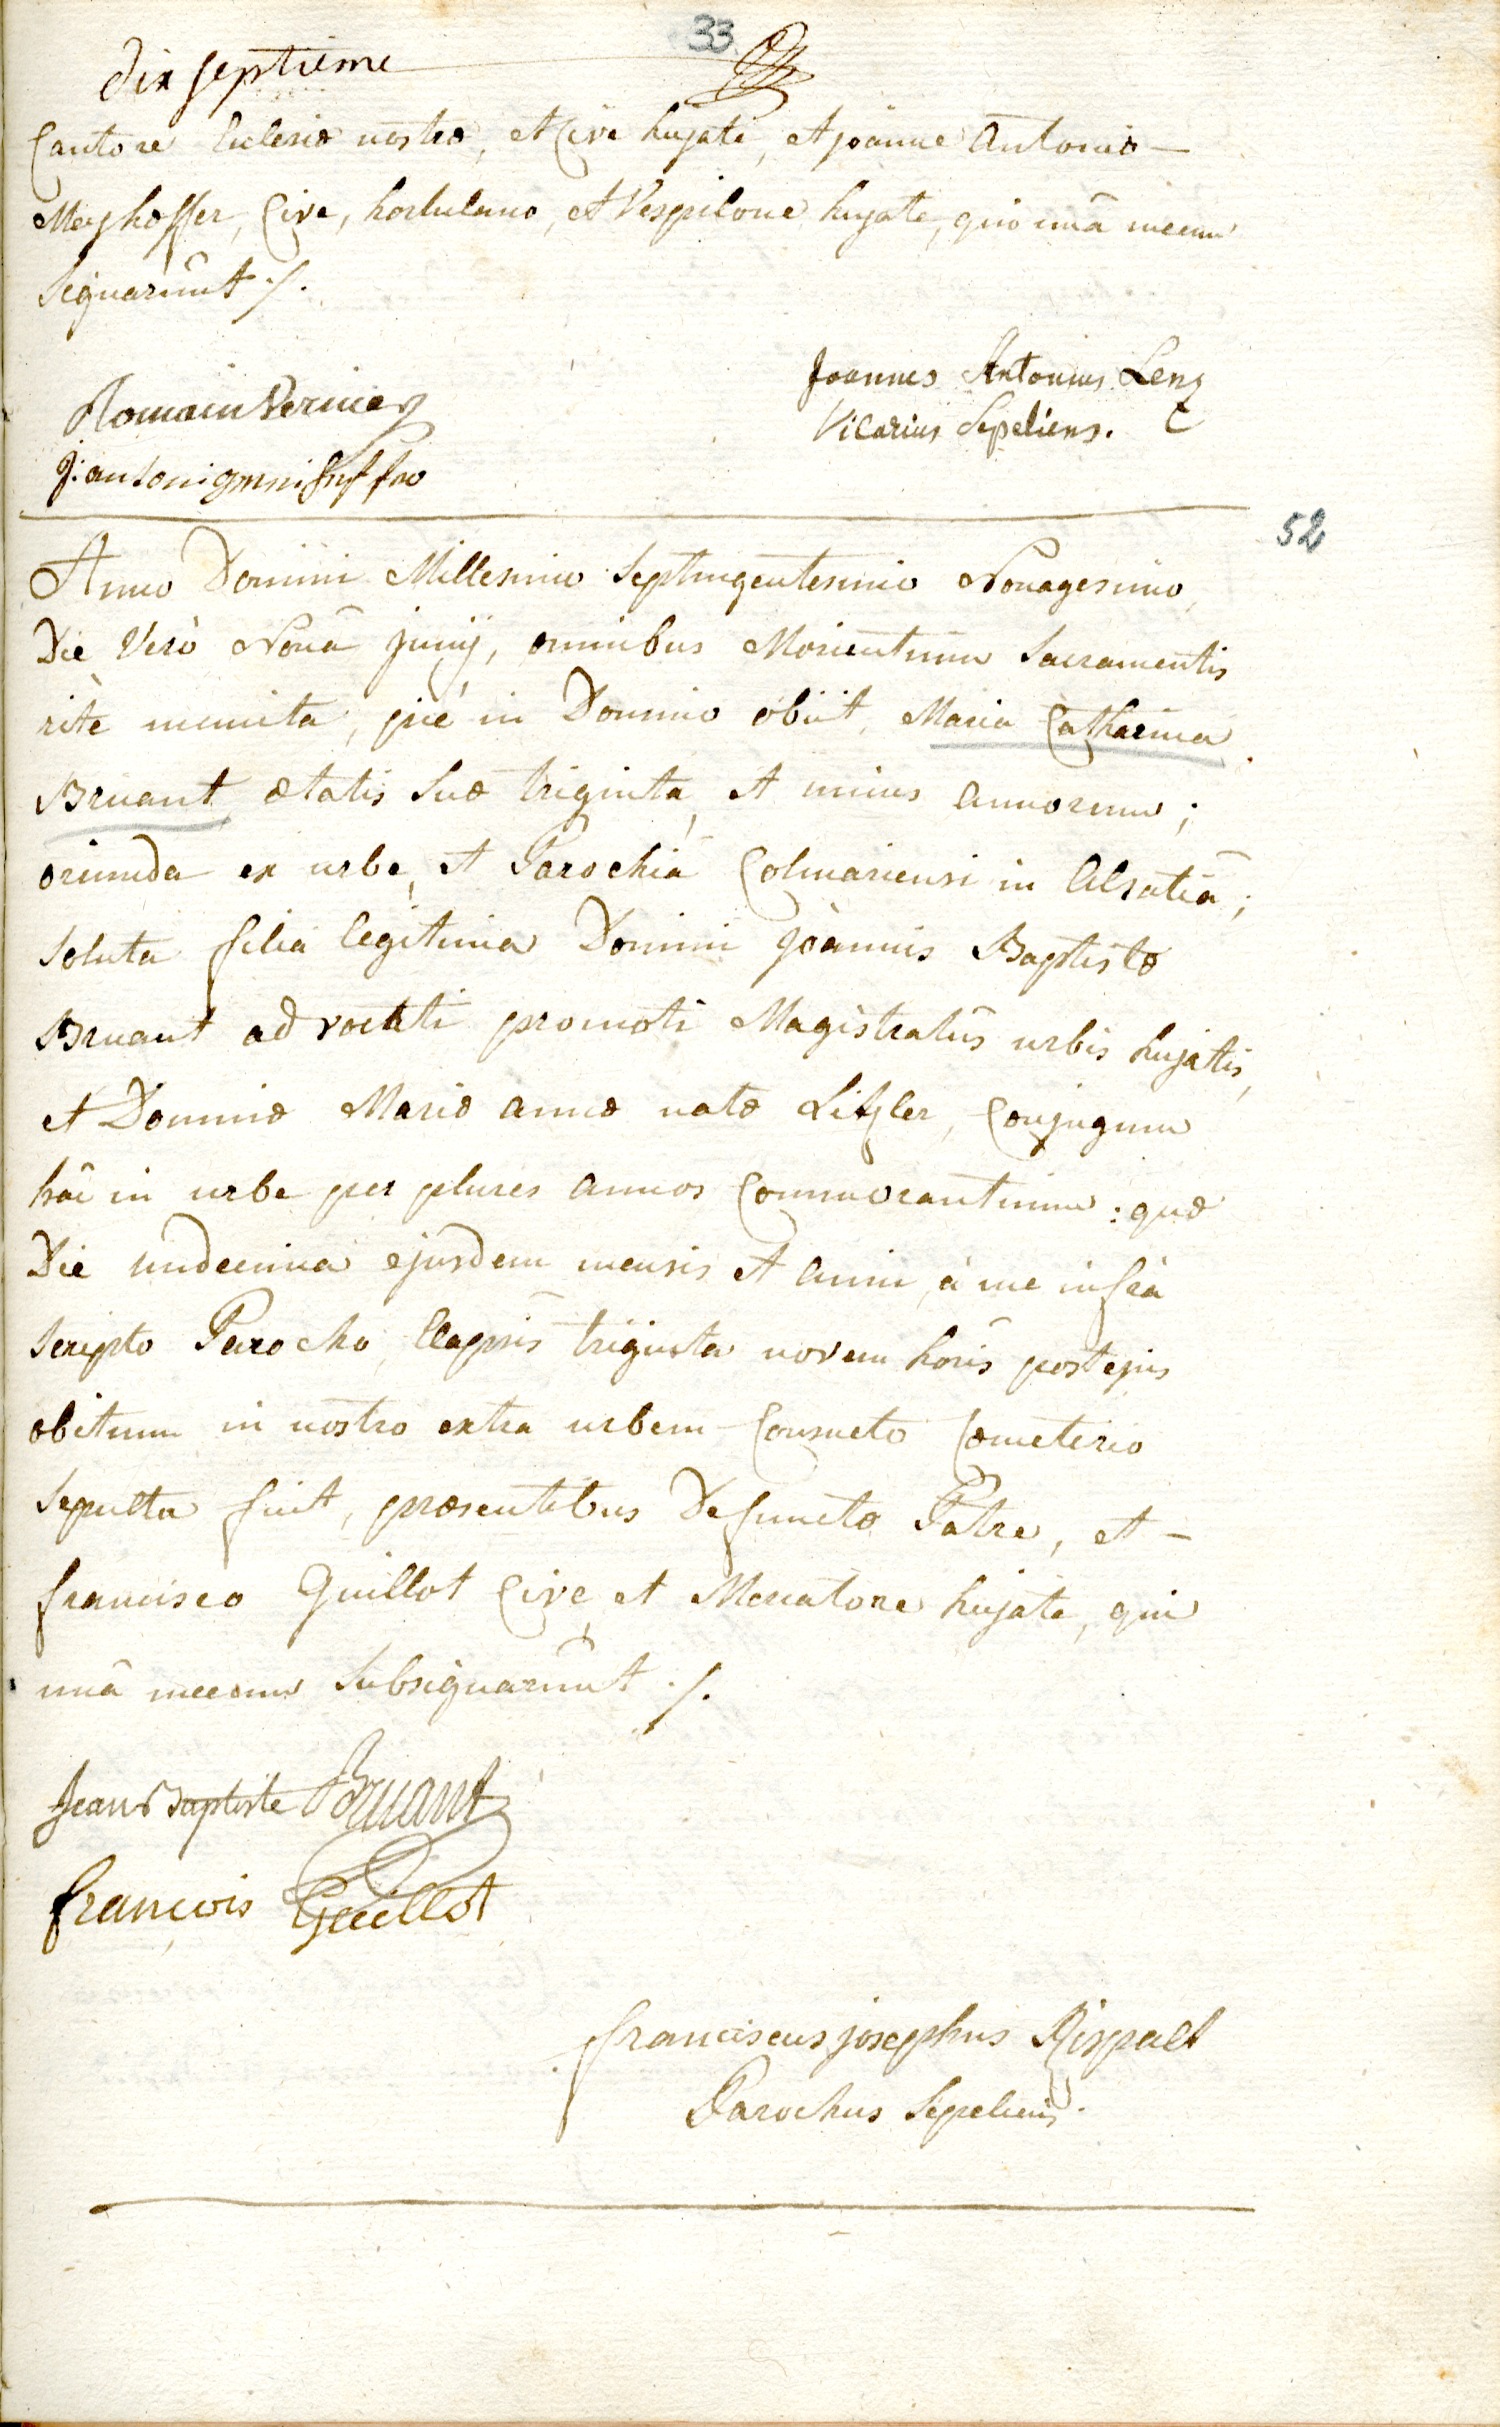 33
dix septieme
Cantore Ecclesiæ nostræ, et Cive hujate, et joanne Antonio —
Meyhoffer, Cive, hortulano, et Vespilone hujate, qui unâ mecum
Signarunt ./.
Joannes Antonius Lenz
Vicarius Sepeliens.
Romain Vernier
52
Anno Domini Millesimo Septingentesimo Nonagesimo,
Die Verò Nonâ junij, omnibus Morientium Sacramentis
ritè munita, piè in Domino obiit, Maria Catharina
Bruant ætatis Suæ triginta, et unius annorum;
oriunda ex urbe, et Parochiâ Colmariensi in Alsatiâ;
Soluta filia legitima Domini Joannis Baptistæ
Bruant advocati promoti Magistratûs urbis hujatis,
et Dominæ Mariæ annæ natæ Litzler, Conjugum
hâc in urbe per plures annos Commorantium: quæ
Die undecima ejusdem mensis et anni, à me infrà
Scripto Parocho, Elapsis triginta novem horis post ejus
obitum in nostro extra urbem Consueto Cœmeterio
Sepulta fuit, præsentibus Defunctæ Patre, et —
francisco Guillot Cive, et Mercatore hujate, qui
unâ mecum Subsignarunt ./.
Jean Baptiste Bruant
françois Guillot
franciscus josephus Rispalt
Parochus Sepeliens.